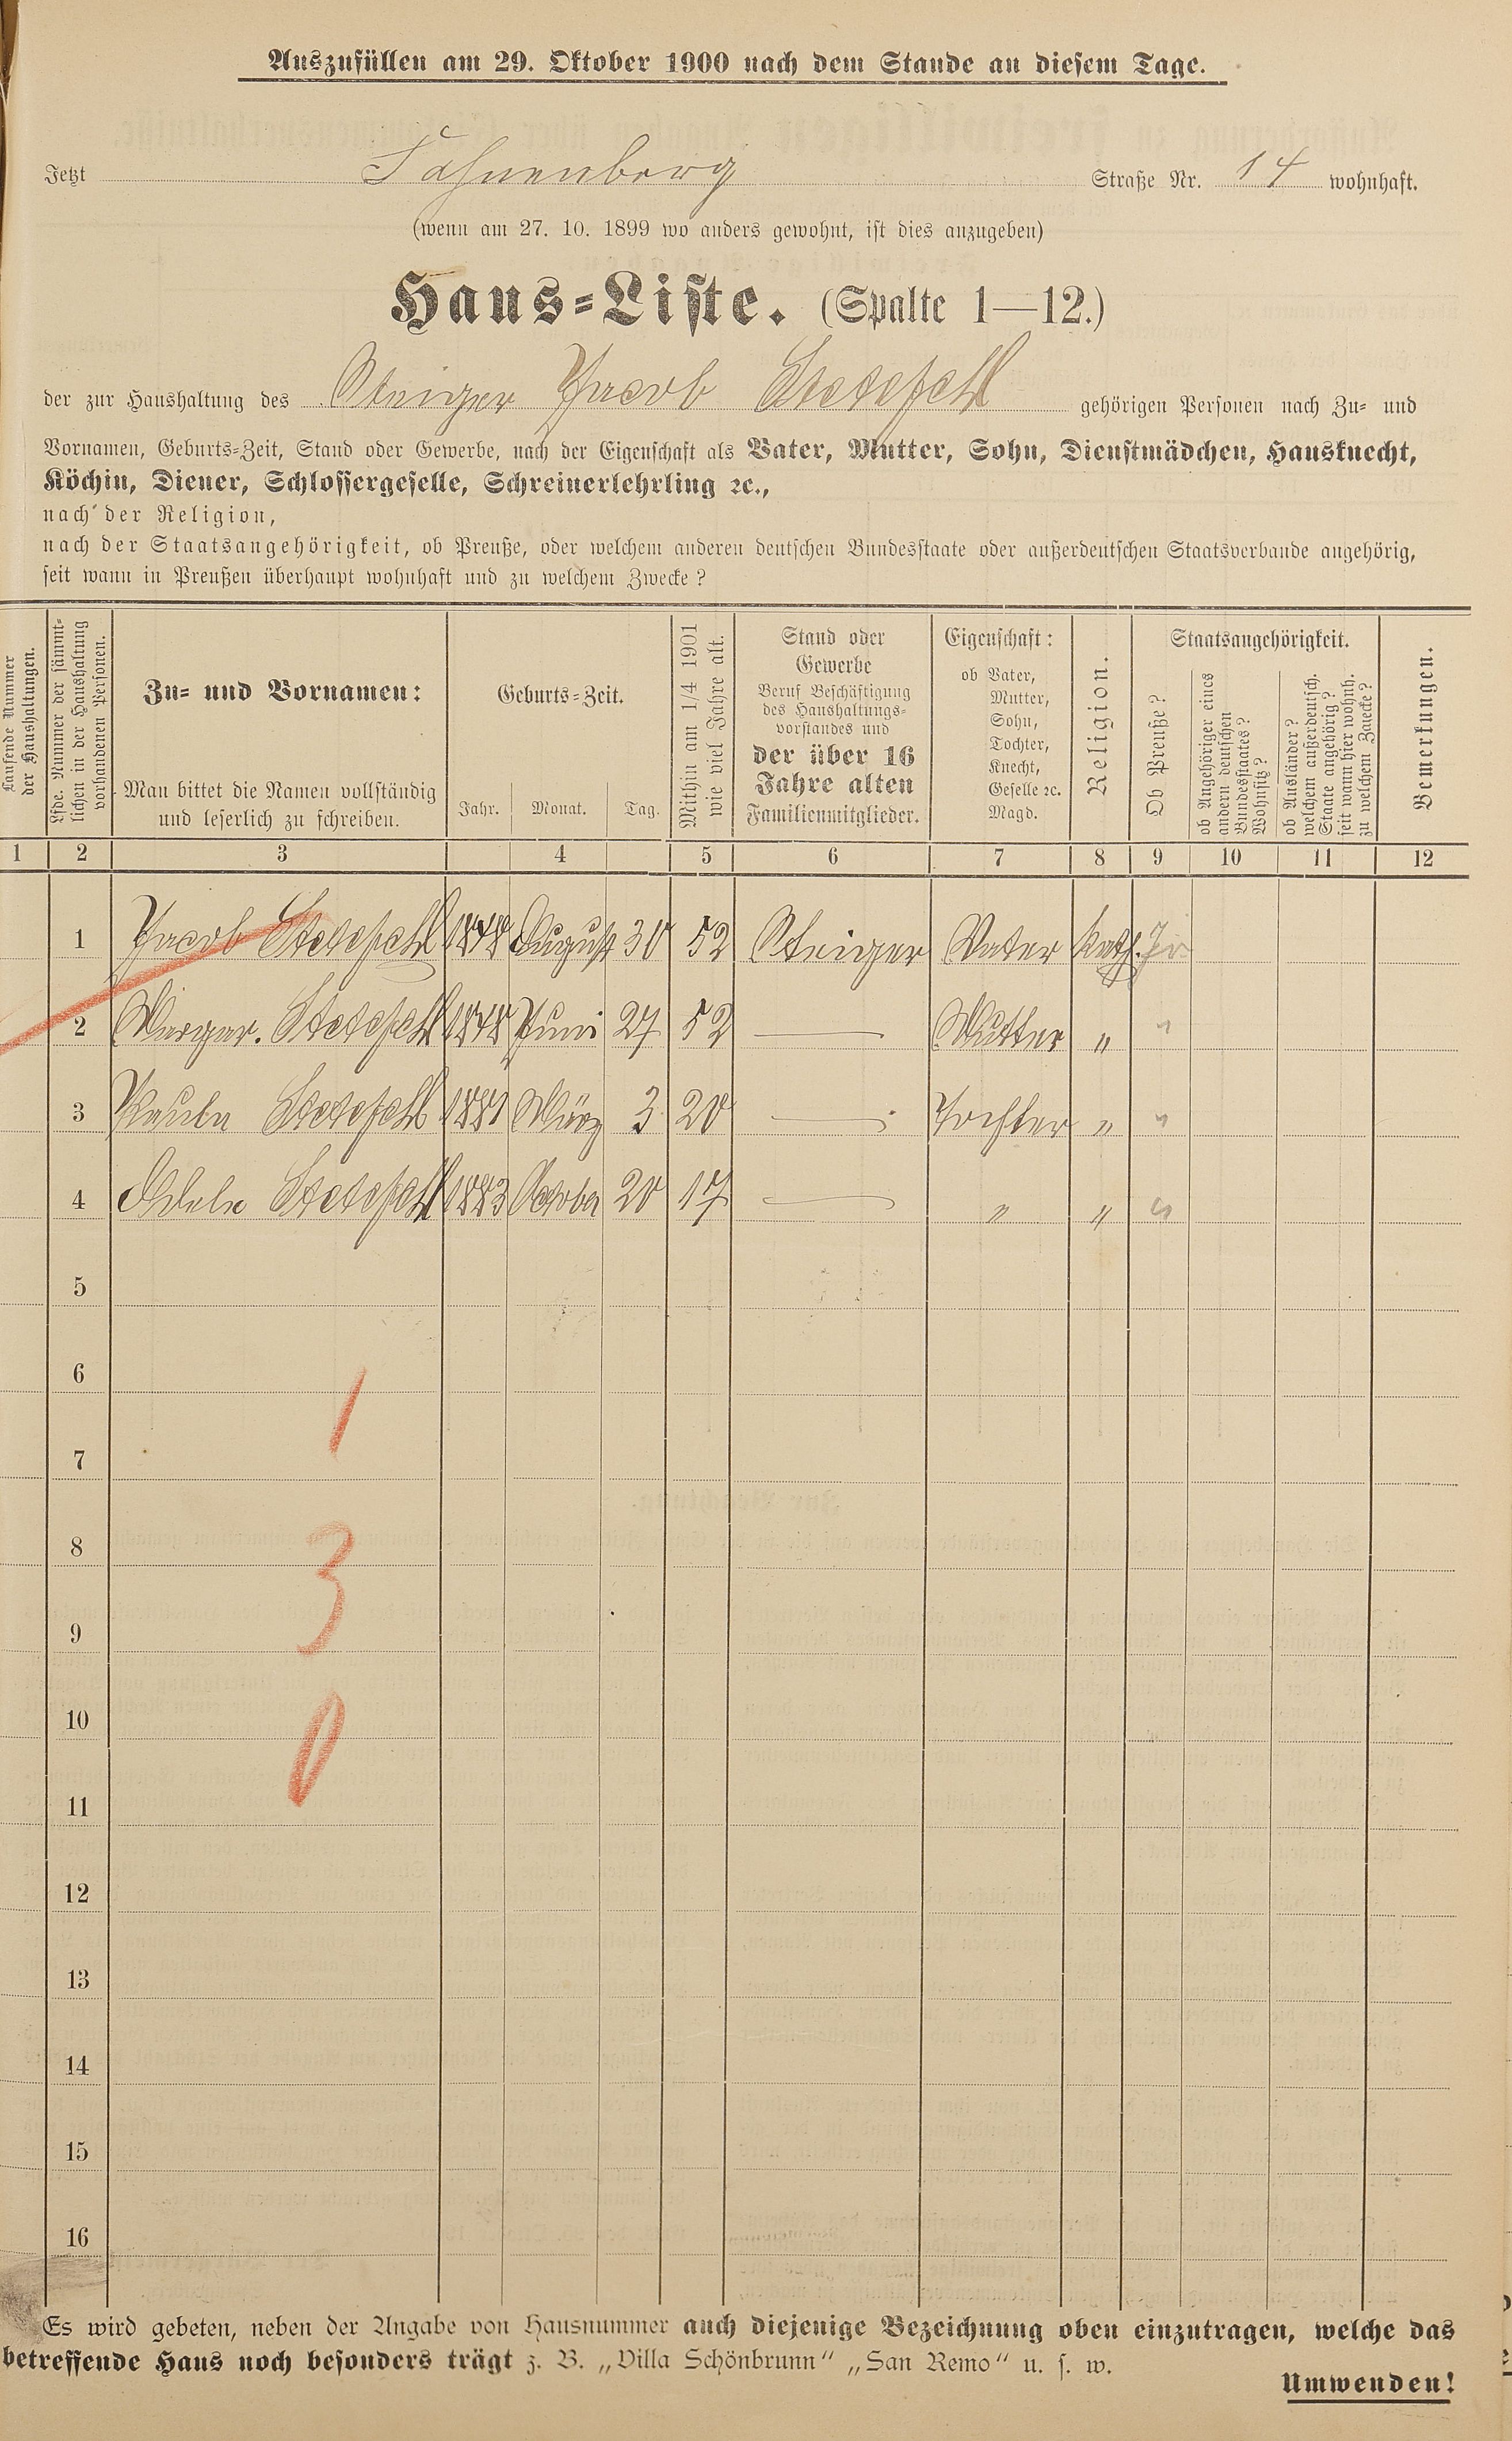 Auszufüllen am 29. Oktober 1900 nach dem Stande an diesem Tage.
Jetzt Fahnenberg Straße Nr. 14 wohnhaft.
(wenn am 27. 10. 1899 wo anders gewohnt, ist dies anzugeben)
Haus-Liste. (Spalte 1—12.)
der zur Haushaltung des Steiger Jacob Stetefeld gehörigen Personen nach Zu- und
Vornamen, Geburts-Zeit, Stand oder Gewerbe, nach der Eigenschaft als Vater, Mutter, Sohn, Dienstmädchen, Hausknecht,
Köchin, Diener, Schlossergeselle, Schreinerlehrling ꝛc.,
nach der Religion,
nach der Staatsangehörigkeit, ob Preuße, oder welchem anderen deutschen Bundesstaate oder außerdeutschen Staatsverbande angehörig,
seit wann in Preußen überhaupt wohnhaft und zu welchem Zwecke?
Laufende Nummer
der Haushaltungen.
Lfde. Nummer der sämmt-
lichen in der Haushaltung
vorhandenen Personen.
Zu- und Vornamen:
Man bittet die Namen vollständig
und leserlich zu schreiben.
Geburts-Zeit.
Jahr. Monat. Tag.
Mithin am 1/4 1901
wie viel Jahre alt.
Stand oder
Gewerbe
Beruf Beschäftigung
des Haushaltungs-
vorstandes und
der über 16
Jahre alten
Familienmitglieder.
Eigenschaft:
ob Vater,
Mutter,
Sohn,
Tochter,
Knecht,
Geselle ꝛc.
Magd.
Religion.
Staatsangehörigkeit.
Ob Preuße?
ob Angehöriger eines
andern deutschen
Bundesstaates?
Wohnsitz?
ob Ausländer?
welchem außerdeutsch.
Staate angehörig?
seit wann hier wohnh.
zu welchem Zwecke?
Bemerkungen.
1 2 3 4 5 6 7 8 9 10 11 12
1 Jacob Stetefeld 1848 August 30 52 Steiger Vater kath. Pr.
2 Margar. Stetefeld 1848 Juni 27 52 — Mutter " "
3 Paula Stetefeld 1881 März 3 20 — Tochter " "
4 Adele Stetefeld 1883 October 20 17 — " " "
5
6
1
7
8
3
9
10
0
11
12
13
14
15
16
Es wird gebeten, neben der Angabe von Hausnummer auch diejenige Bezeichnung oben einzutragen, welche das
betreffende Haus noch besonders trägt z. B. „Villa Schönbrunn“ „San Remo“ u. s. w.
Umwenden!